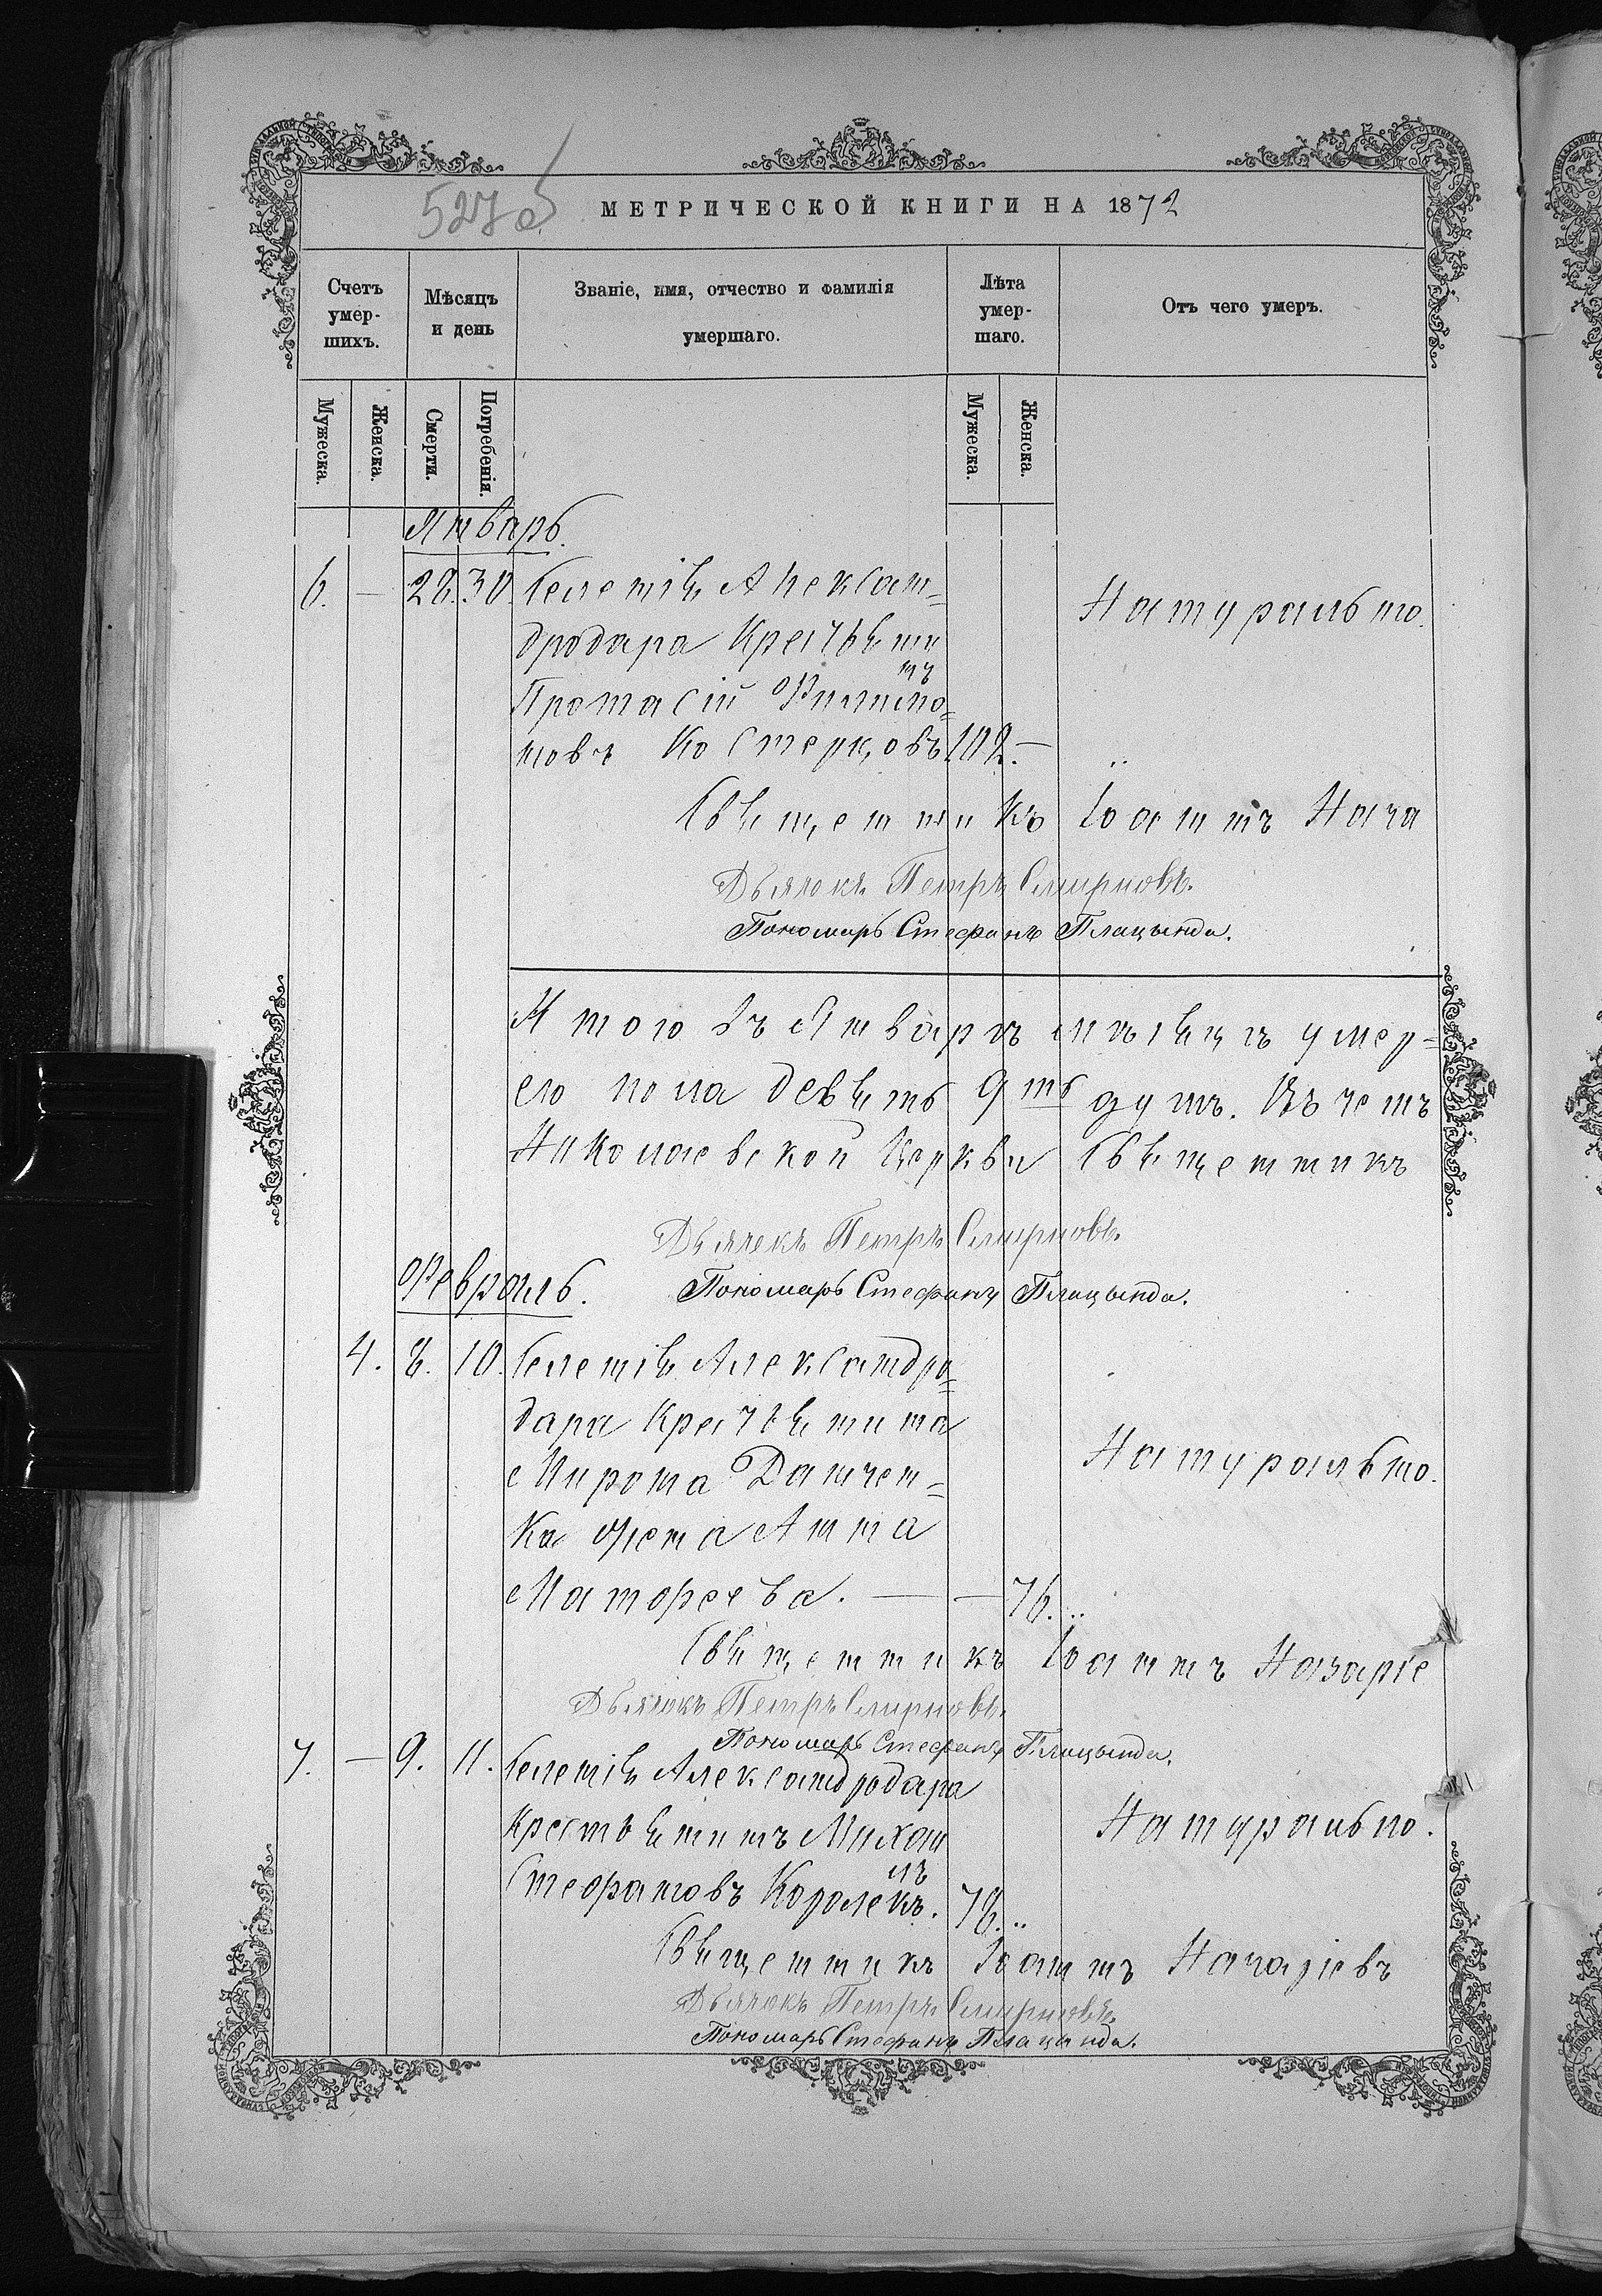 527об
МЕТРИЧЕСКОЙ КНИГИ НА 1872
Счетъ умер-шихъ.
Мѣсяцъ и день
Званіе, имя, отчество и фамилія умершаго.
Лѣта умер-шаго.
Отъ чего умеръ.
Мужеска.
Женска.
Смерти.
Погребенія.
Мужеска.
Женска.
Январь.
6. — 28. 30. Селенія Александ=
Натурально.
дродара Крестьянинъ
Протасій Филимо=
новъ Костерцовъ 102. —
Священникъ Іоаннъ Наза
Дьячокъ Петръ Смирновъ.
Пономарь Стефанъ Плацында.
Итого въ Январѣ мѣсяцѣ умер=
его пола девять 9ть душъ. Въ чемъ
Николаевской Церкви Священникъ
Дьячекъ Петръ Смирновъ.
Февраль.
Пономарь Стефанъ Плацында.
4. 8. 10. Селенія Александро=
дара Крестьянина
Мирона Данчен=
Натурально.
ка жена Анна
Матфеева. — — 76.
Священникъ Іоаннъ Назаріе
Дьячокъ Петръ Смирновъ.
Пономарь Стефанъ Плацында.
7. — 9. 11. Селенія Александродара
Крестьянинъ Михаилъ
Натурально.
Стефановъ Королекъ. 78.
Священникъ Іоаннъ Назаріевъ
Дьячокъ Петръ Смирновъ.
Пономарь Стефанъ Плацында.